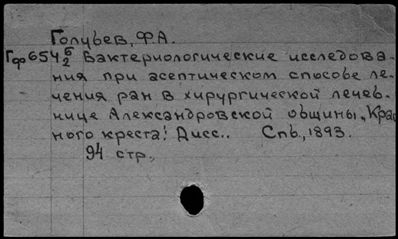 Голубев, Ф.А.
Гф 654 6/2 Бактериологические исследова-
ния при асептическом способе ле-
чения ран в хирургической лечеб-
нице Александровской общины „Крас
ного креста! Дисс.. Спб., 1893.
94 стр.,